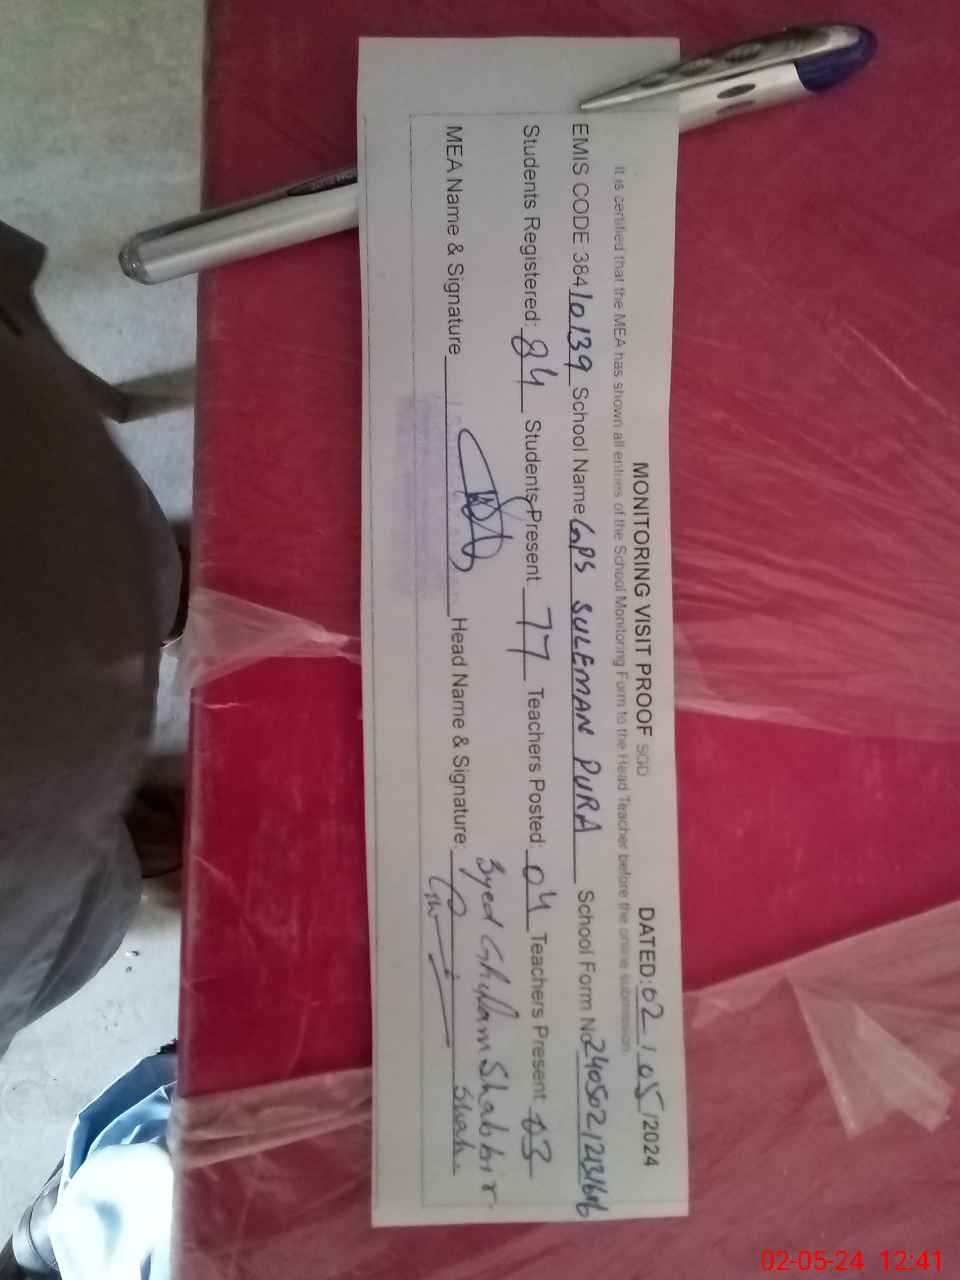 MONITORING VISIT PROOF SGD DATED: 02/05/2024
It is certified that the MEA has shown all entries of the School Monitoring Form to the Head Teacher before the online submission
EMIS CODE 38410139 School Name GPS SULEMAN PURA School Form No
Students Registered: 84 Students Present: 77 Teachers Posted: 04 Teachers Present 03
MEA Name & Signature Head Name & Signature: Syed Ghulam Shabbir
Shah
02-05-24 12:41